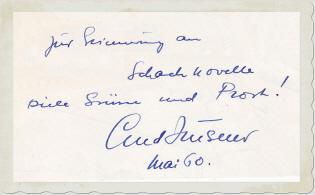 Zur Erinnerung an
Schachnovelle
Viele Grüsse und Prost!
Curd Jürgens
Mai 60.